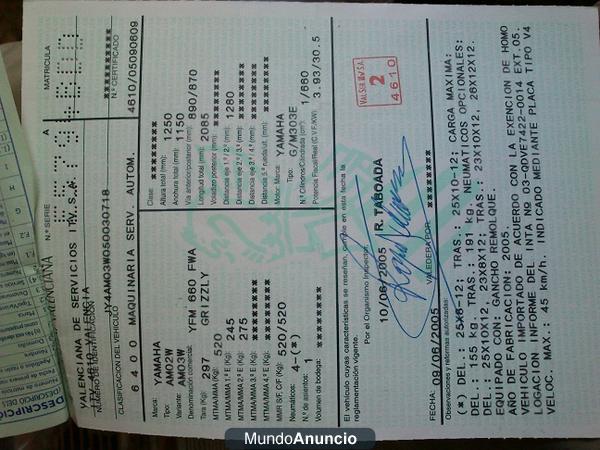 VALENCIANA DE SERVICIOS ITV, S.A.
Nº SERIE A
MATRICULA
NUMERO DE IDENTIFICACION
JY4AM03W050030718
*********
N.º CERTIFICADO
CLASIFICACION DEL VEHICULO
6400 MAQUINARIA SERV. AUTOM.
4610/05090609
Marca: YAMAHA
Tipo: AM02W
Variante: AM03W
Denominación comercial: YFM 660 FWA
GRIZZLY
Tara (Kg): 297
MTMA/MMA (Kg): 520
MTMA/MMA 1.º E (Kg): 245
MTMA/MMA 2.º E (Kg): 275
MTMA/MMA 3.º E (Kg): ********
MTMA/MMA 4.º E (Kg): ********
MMR S/F, C/F (Kg): 520/520
Neumáticos: 4-(*)
N.º de asientos: 1
Volumen de bodega: ***
Clase: ********
Altura total (mm): 1250
Anchura total (mm): 1150
Vía anterior/posterior (mm): 890/870
Longitud total (mm): 2085
Voladizo posterior (mm): ********
Distancia eje 1.º/2.º (mm): 1280
Distancia eje 2.º/3.º (mm): ********
Distancia eje 3.º/4.º (mm): ********
Distancia 5.ª rueda/ult. (mm): ********
Motor: Marca: YAMAHA
Tipo: G/M303E
N.º Cilindros/Cilindrada (cm³): 1/660
Potencia Fiscal/Real (C.V.F./KW): 3.93/30.5
El vehículo cuyas características se reseñan, cumple en esta fecha la
reglamentación vigente.
Por el Organismo Inspector,
10/06/2005 R. TABOADA
VALSER ITV S.A.
2
4610
FECHA: 09/06/2005
VALEDERA POR ********
Observaciones y reformas autorizadas:
(*) DEL.: 25X8-12; TRAS.: 25X10-12; CARGA MAXIMA:
DEL.: 155 kg, TRAS.: 191 kg. NEUMATICOS OPCIONALES:
DEL.: 25X10X12, 23X8X12; TRAS.: 23X10X12, 26X12X12.
EQUIPADO CON: GANCHO REMOLQUE.
AÑO DE FABRICACION: 2005.
VEHICULO IMPORTADO DE ACUERDO CON LA EXENCION DE HOMO
LOGACION INFORME DEL INTA Nº 03-QDVE7422-0014 EXT.05.
VELOC. MAX.: 45 km/h. INDICADO MEDIANTE PLACA TIPO V4
DESCRIPCIÓN
MundoAnuncio